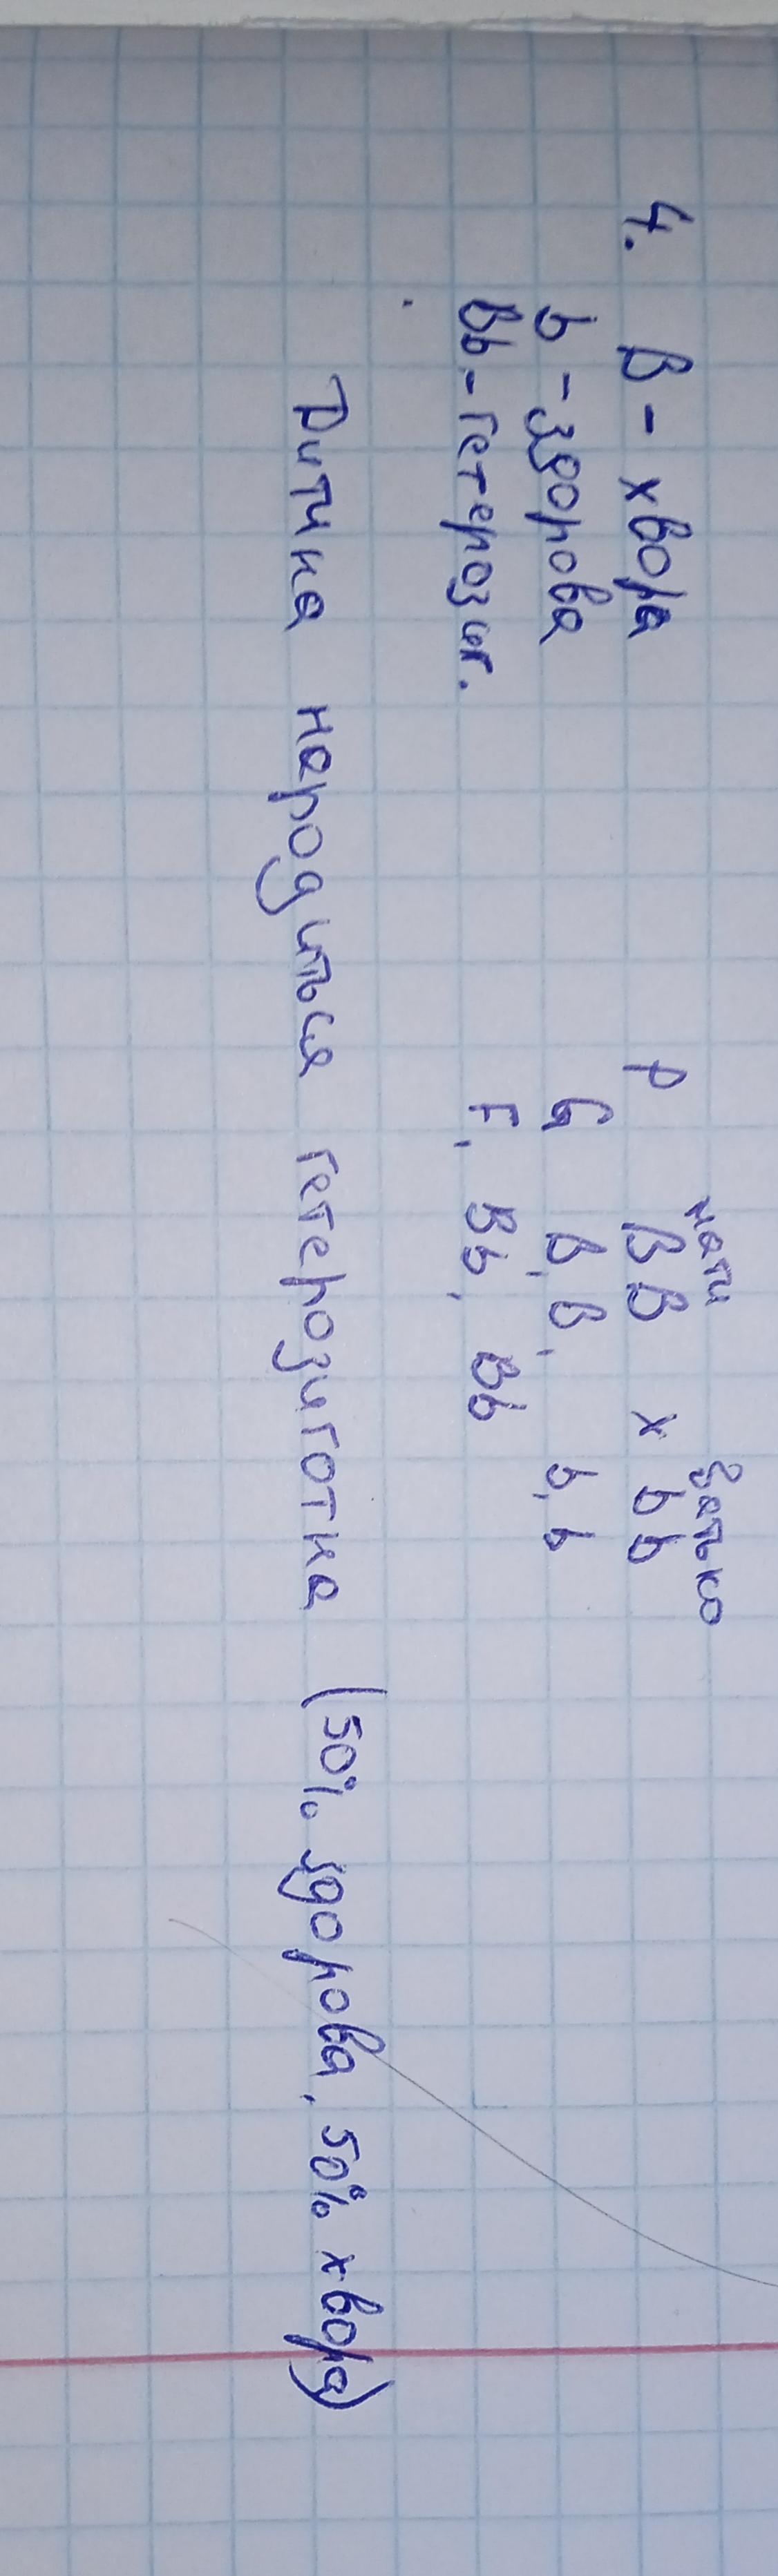 4. B - хвора
b - здорова
Bb - гетерозиг.
мати батько
P BB x bb
G B, B, b, b
F₁ Bb, Bb
Дитина народиться гетерозиготна (50% здорова, 50% хвора)